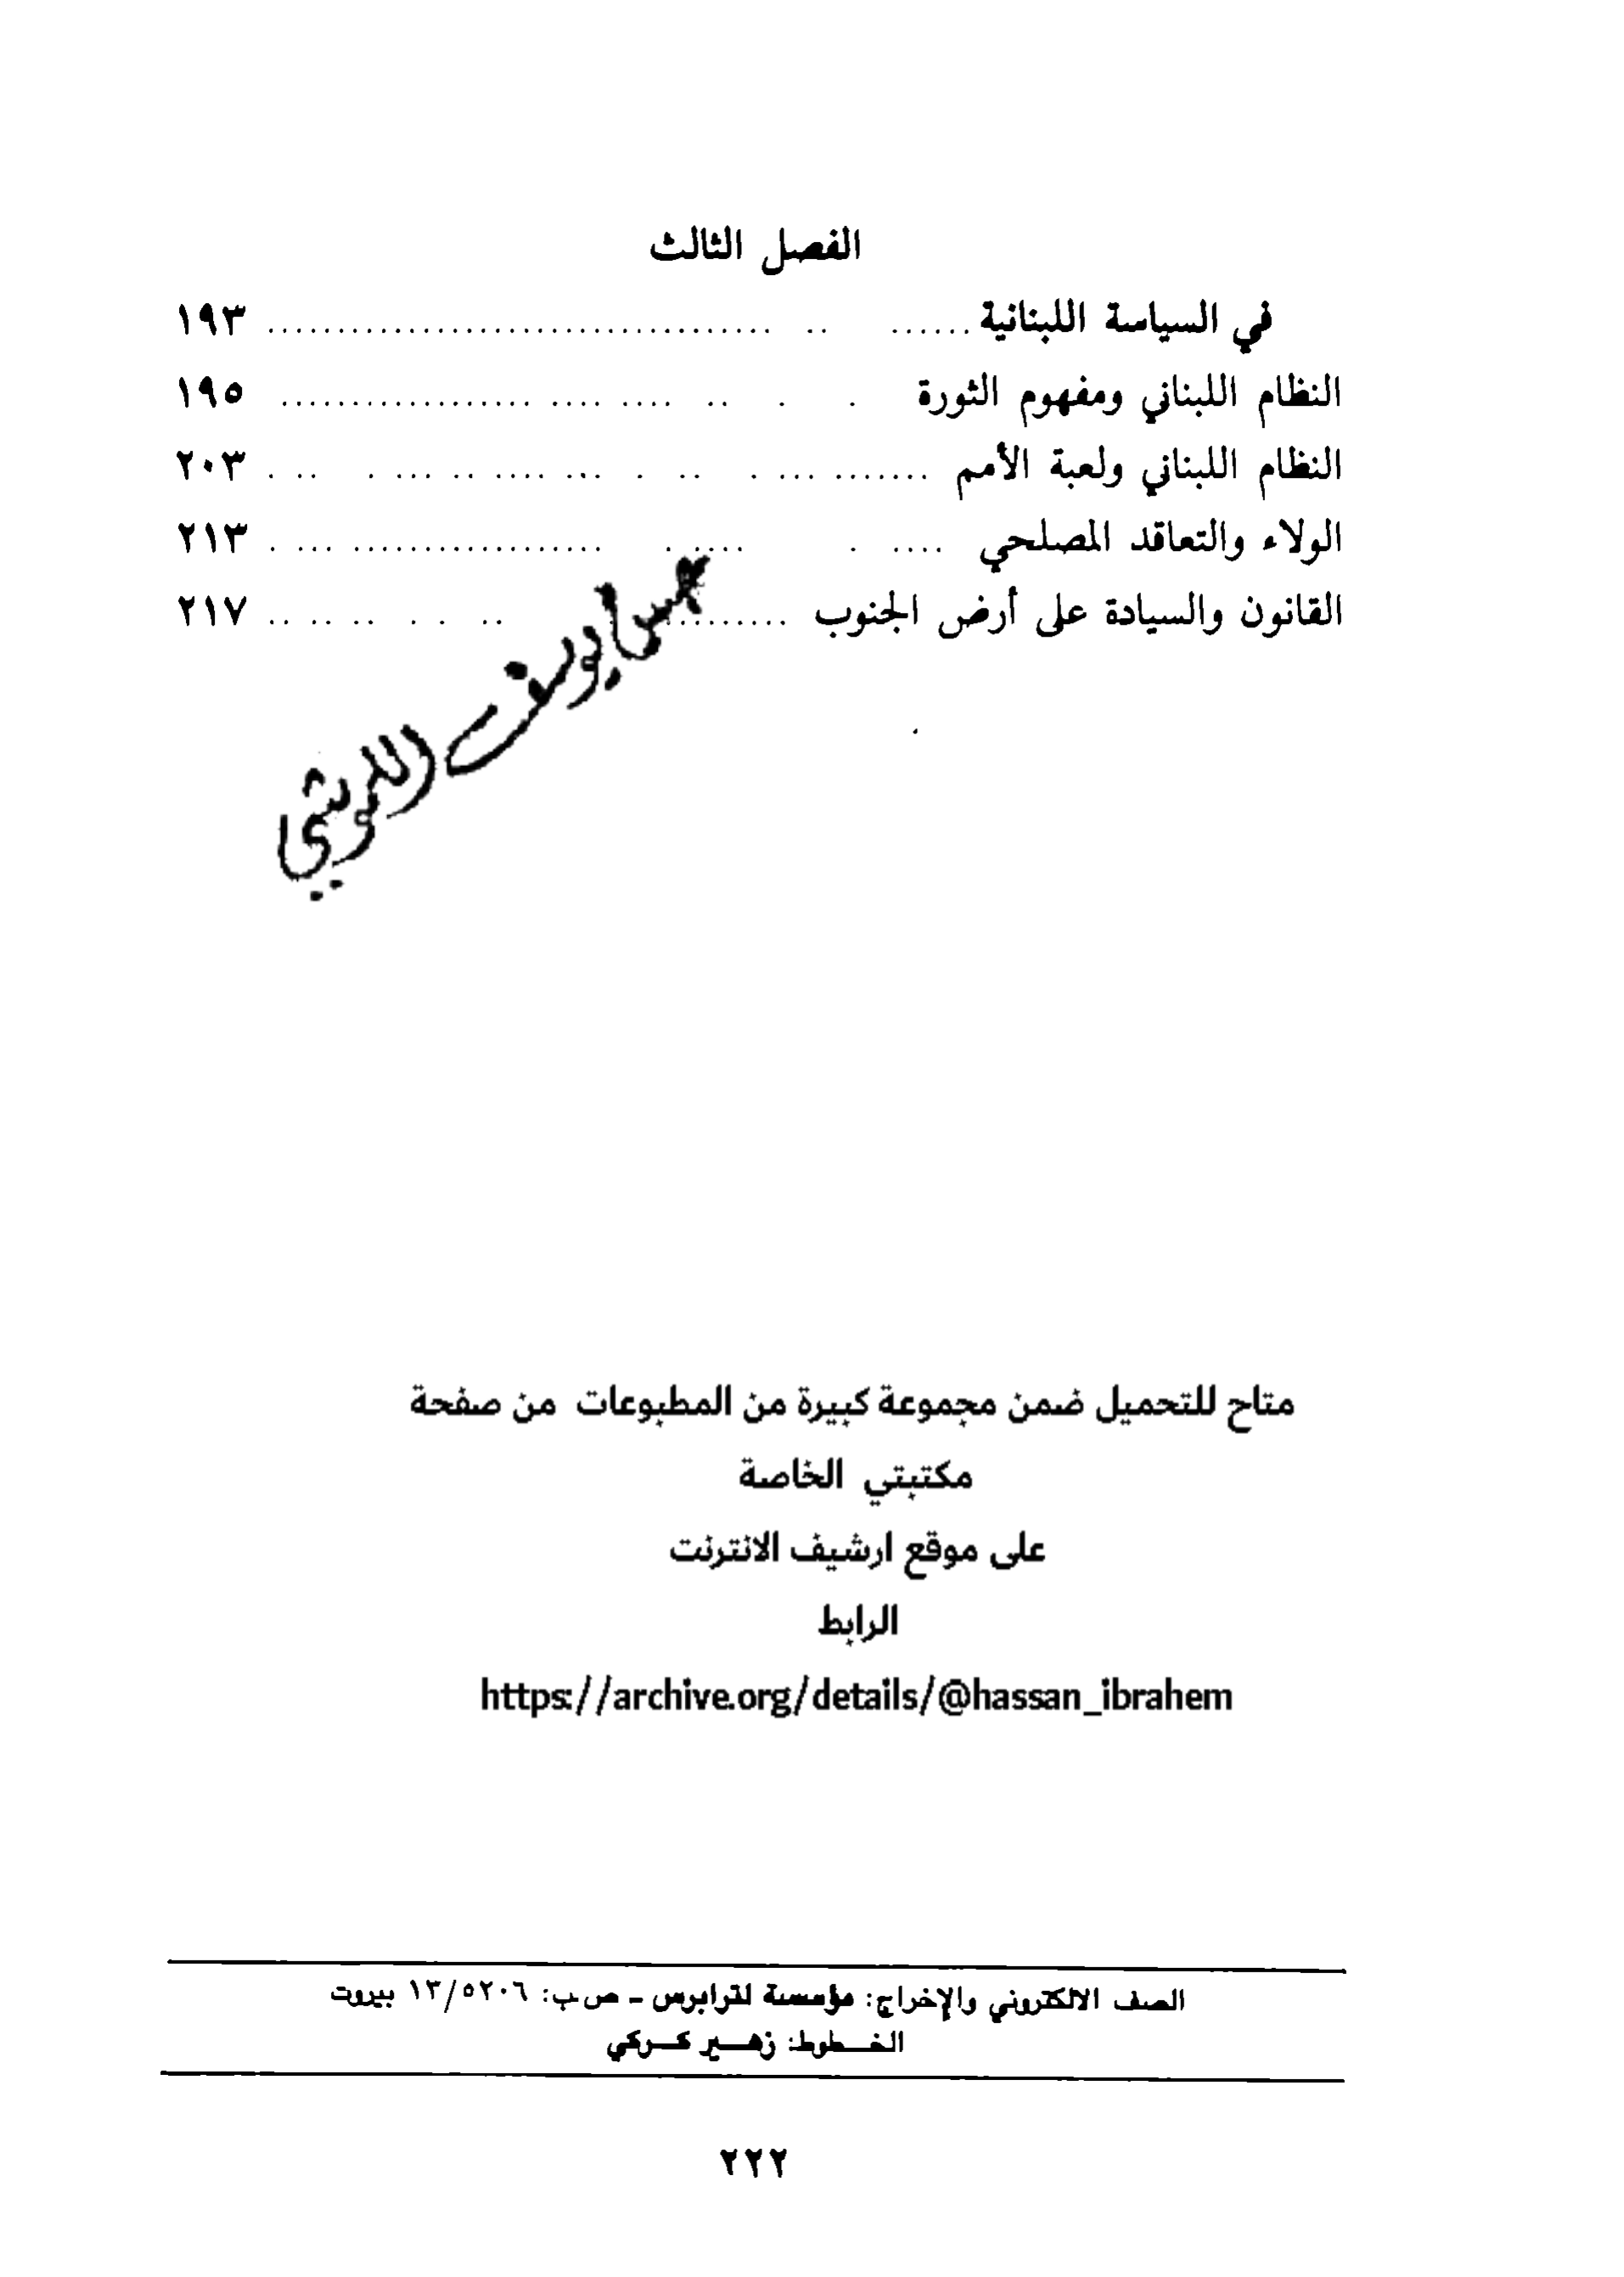 الفصل الثالث
في السياسة اللبنانية ................................................ ١٩٣
النظام اللبناني ومفهوم الثورة ................................................ ١٩٥
النظام اللبناني ولعبة الأمم ................................................ ٢٠٣
الولاء والتعاقد المصلحي ................................................ ٢١٣
القانون والسيادة على أرض الجنوب ................................................ ٢١٧
متاح للتحميل ضمن مجموعة كبيرة من المطبوعات من صفحة
مكتبتي الخاصة
على موقع ارشيف الانترنت
الرابط
https://archive.org/details/@hassan_ibrahem
الصف الالكتروني والإخراج: مؤسسة لترابرس - ص.ب: ١٣/٥٢٠٦ بيروت
الخـــطوط: زهـــير كـــركي
٢٢٢